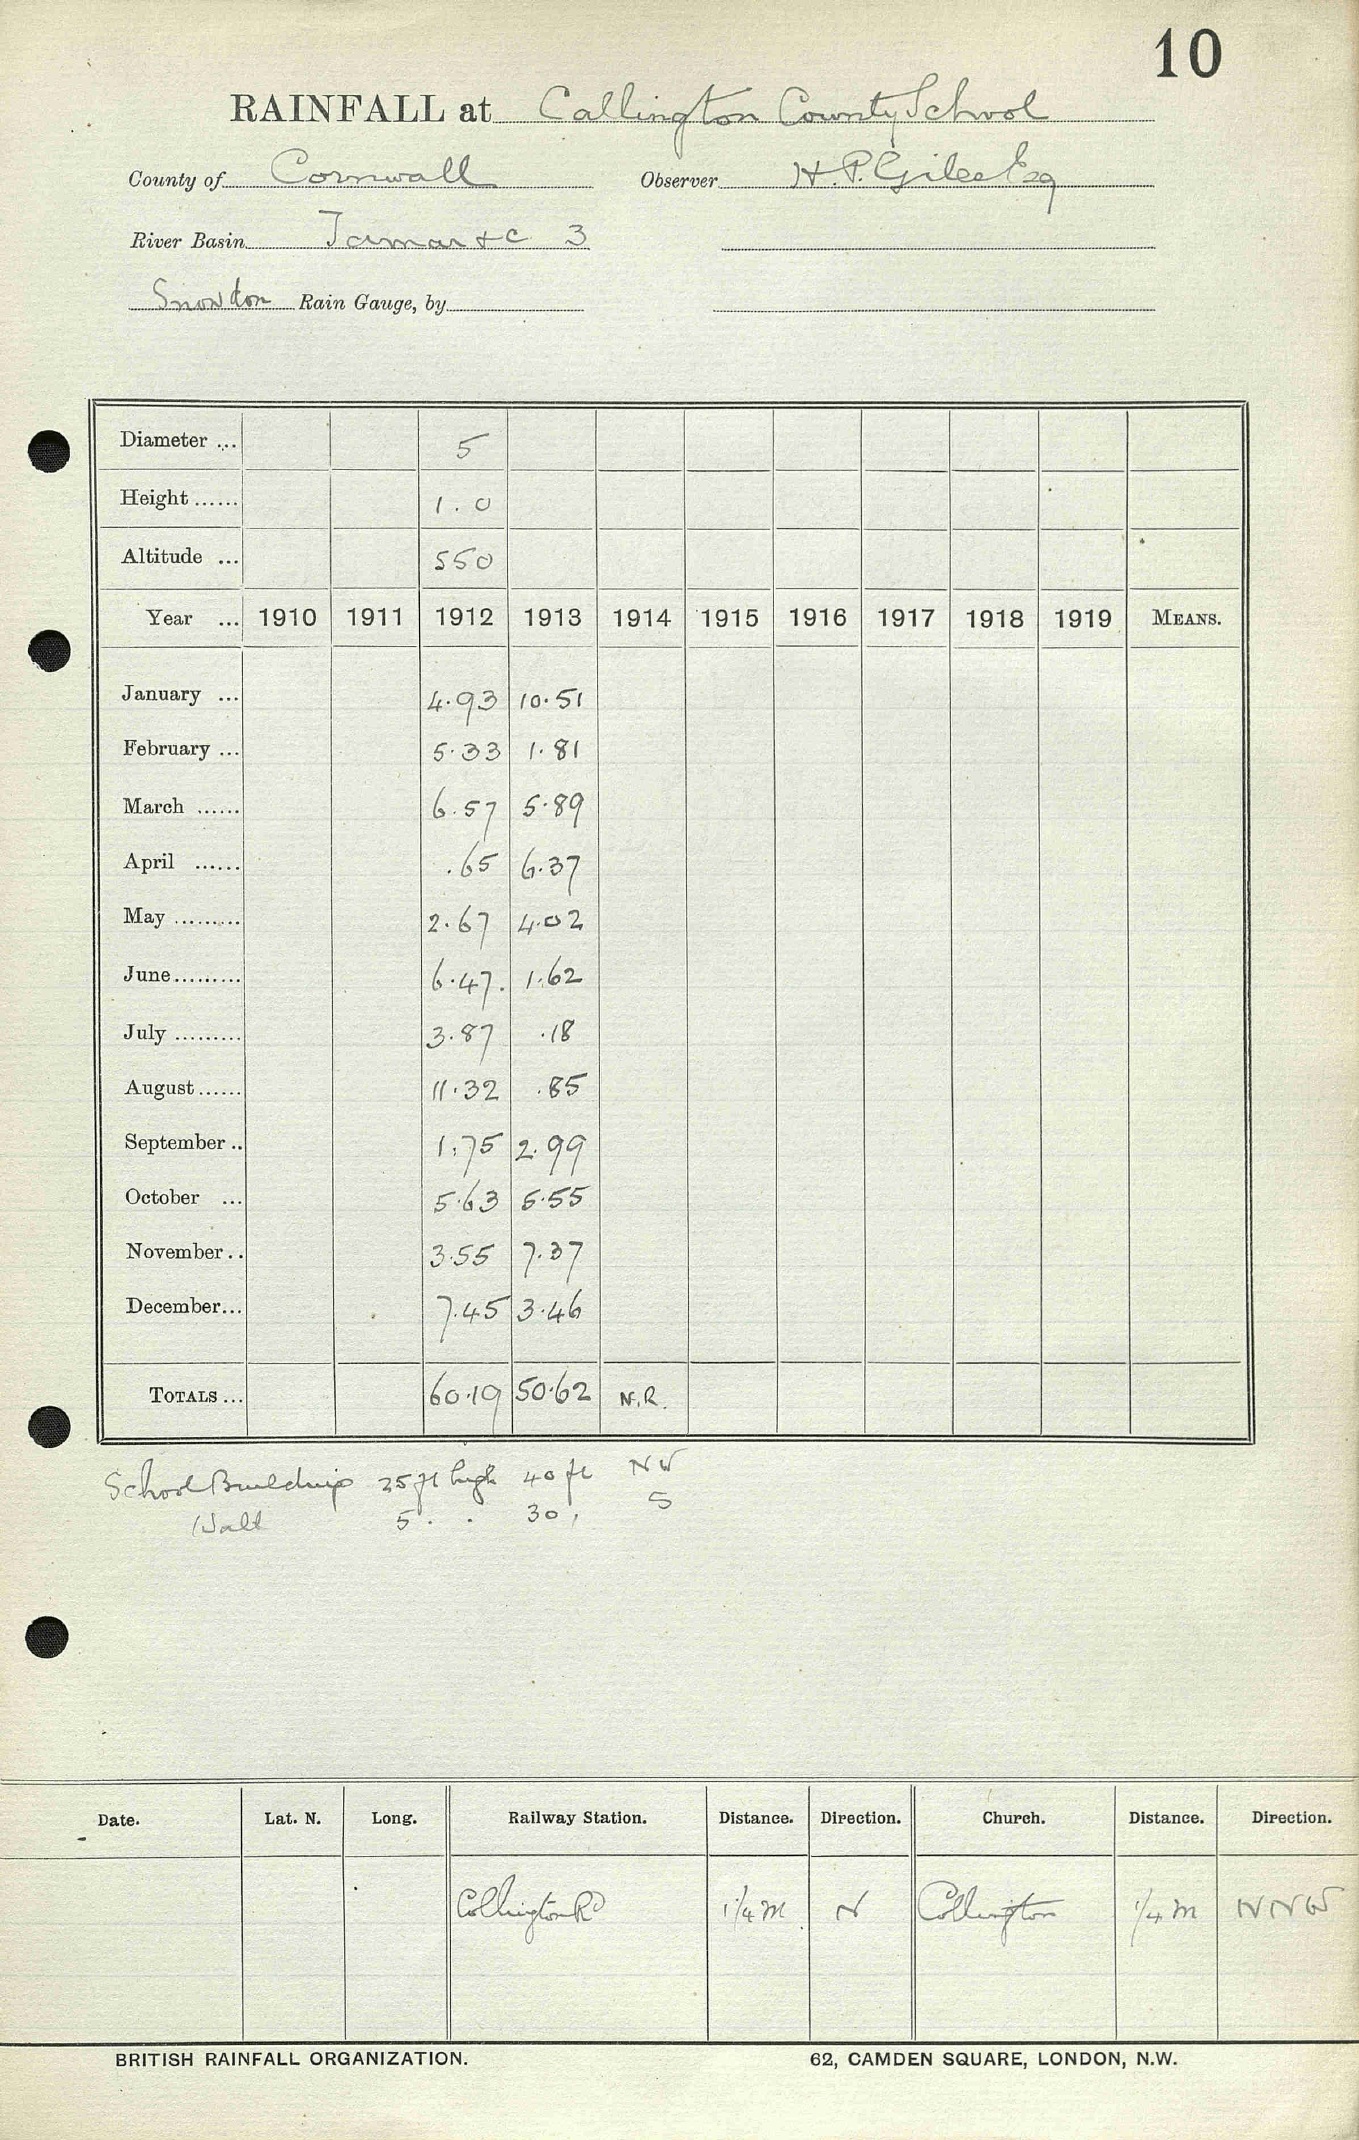 10
RAINFALL at Callington County School
County of Cornwall Observer H. P. Giles Esq
River Basin Tamar &c 3
Snowdon Rain Gauge, by
Diameter ... 5
Height ...... 1.0
Altitude ... 550
Year ... 1910 1911 1912 1913 1914 1915 1916 1917 1918 1919 MEANS.
January ... 4.93 10.51
February ... 5.33 1.81
March ...... 6.57 5.89
April ...... .65 6.37
May ......... 2.67 4.02
June ......... 6.47. 1.62
July ......... 3.87 .18
August ...... 11.32 .85
September .. 1.75 2.99
October ... 5.63 5.55
November .. 3.55 7.37
December ... 7.45 3.46
TOTALS ... 60.19 50.62 N.R.
School Buildings 25 ft high 40 ft NW
Wall 5 " " 30 " S
Date. Lat. N. Long. Railway Station. Distance. Direction. Church. Distance. Direction.
Callington Rd 1/4 m N Callington 1/4 m NNW
BRITISH RAINFALL ORGANIZATION. 62, CAMDEN SQUARE, LONDON, N.W.